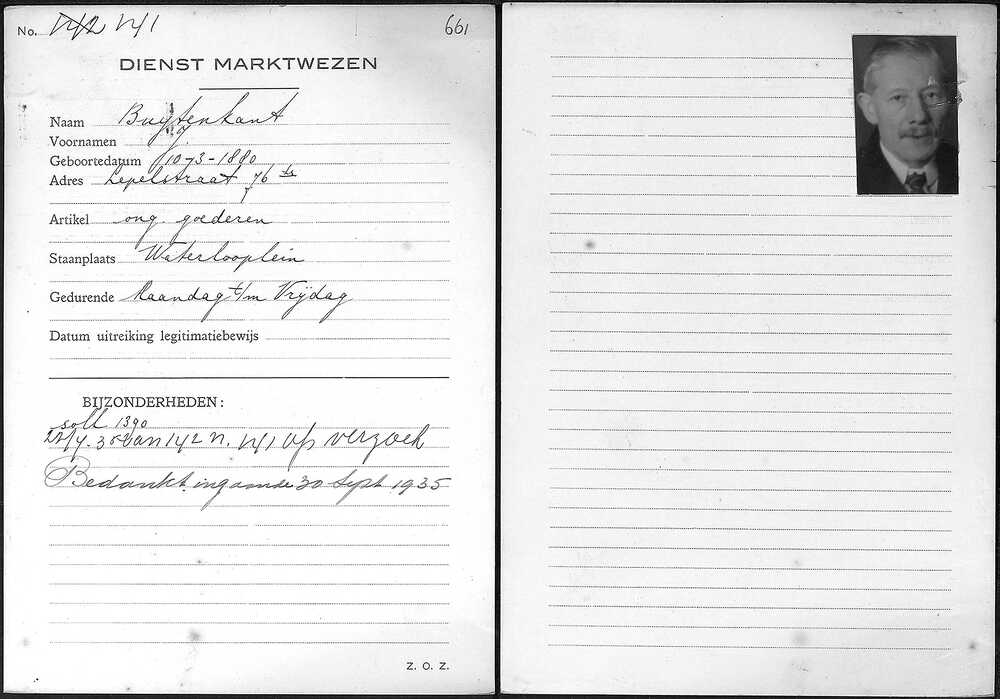 No. 142 141 661
DIENST MARKTWEZEN
Naam Buytenkant
Voornamen J.
Geboortedatum 10-3-1890
Adres Lepelstraat 76 hs
Artikel ong. goederen
Staanplaats Waterlooplein
Gedurende Maandag t/m Vrijdag
Datum uitreiking legitimatiebewijs
BIJZONDERHEDEN:
soll 1390
/4.35 van 142 n. 141 op verzoek
Bedankt ingaande 30 Sept 1935
Z. O. Z.